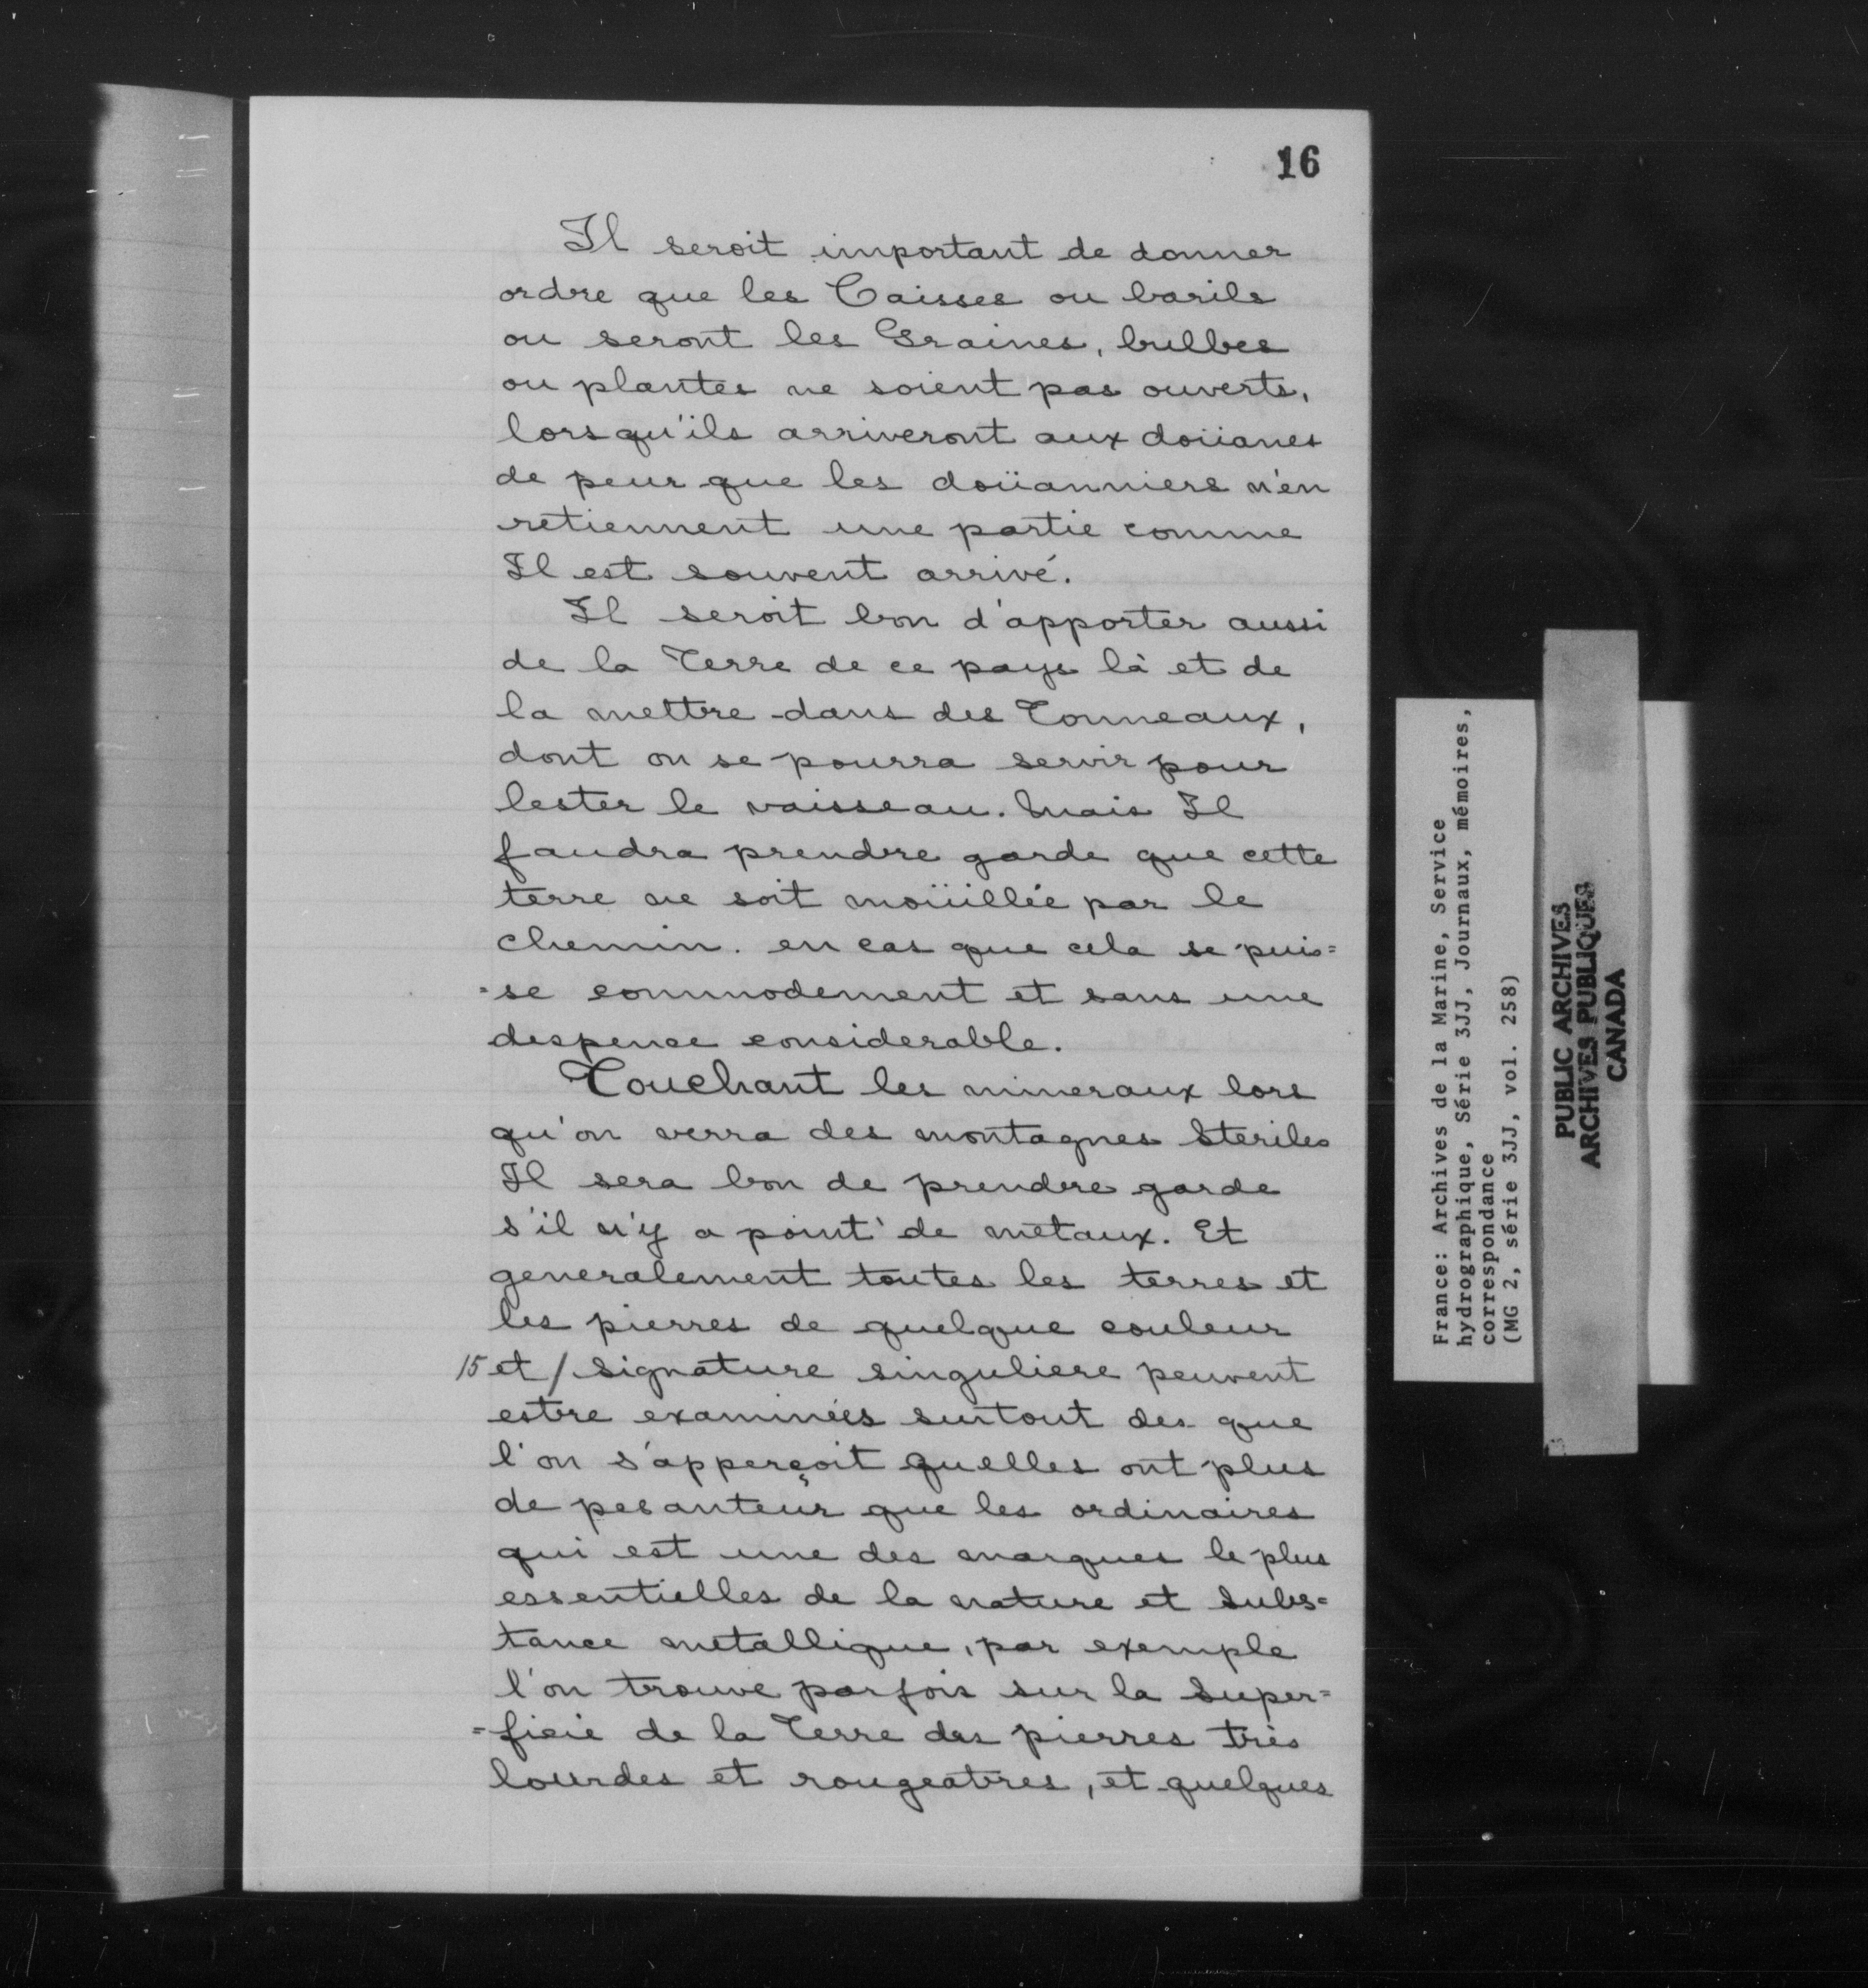 16
Il seroit important de donner
ordre que les Caisses ou barils
ou seront les Graines, bulbes
ou plantes ne soient pas ouverts,
lorsqu'ils arriveront aux doüanes
de peur que les doüanniers n'en
retiennent une partie comme
Il est souvent arrivé.
Il seroit bon d'apporter aussi
de la Terre de ce pays là et de
la mettre dans des Tonneaux,
dont on se pourra servir pour
lester le vaisseau. Mais Il
faudra prendre garde que cette
terre ne soit moüillée par le
chemin. en cas que cela se puis=
=se commodement et sans une
despence considerable.
Touchant les mineraux lors
qu'on verra des montagnes Steriles
Il sera bon de prendre garde
s'il n'y a point de metaux. Et
generalement toutes les terres et
les pierres de quelque couleur
15 et / signature singuliere peuvent
estre examinées surtout des que
l'on s'apperçoit quelles ont plus
de pesanteur que les ordinaires
qui est une des marques le plus
essentielles de la nature et Subs=
tance metallique, par exemple
l'on trouve parfois sur la Super=
=ficie de la Terre des pierres très
lourdes et rougeatres, et quelques
France: Archives de la Marine, Service
hydrographique, Série 3JJ, Journaux, mémoires,
correspondance
(MG 2, série 3JJ, vol. 258)
PUBLIC ARCHIVES
ARCHIVES PUBLIQUES
CANADA